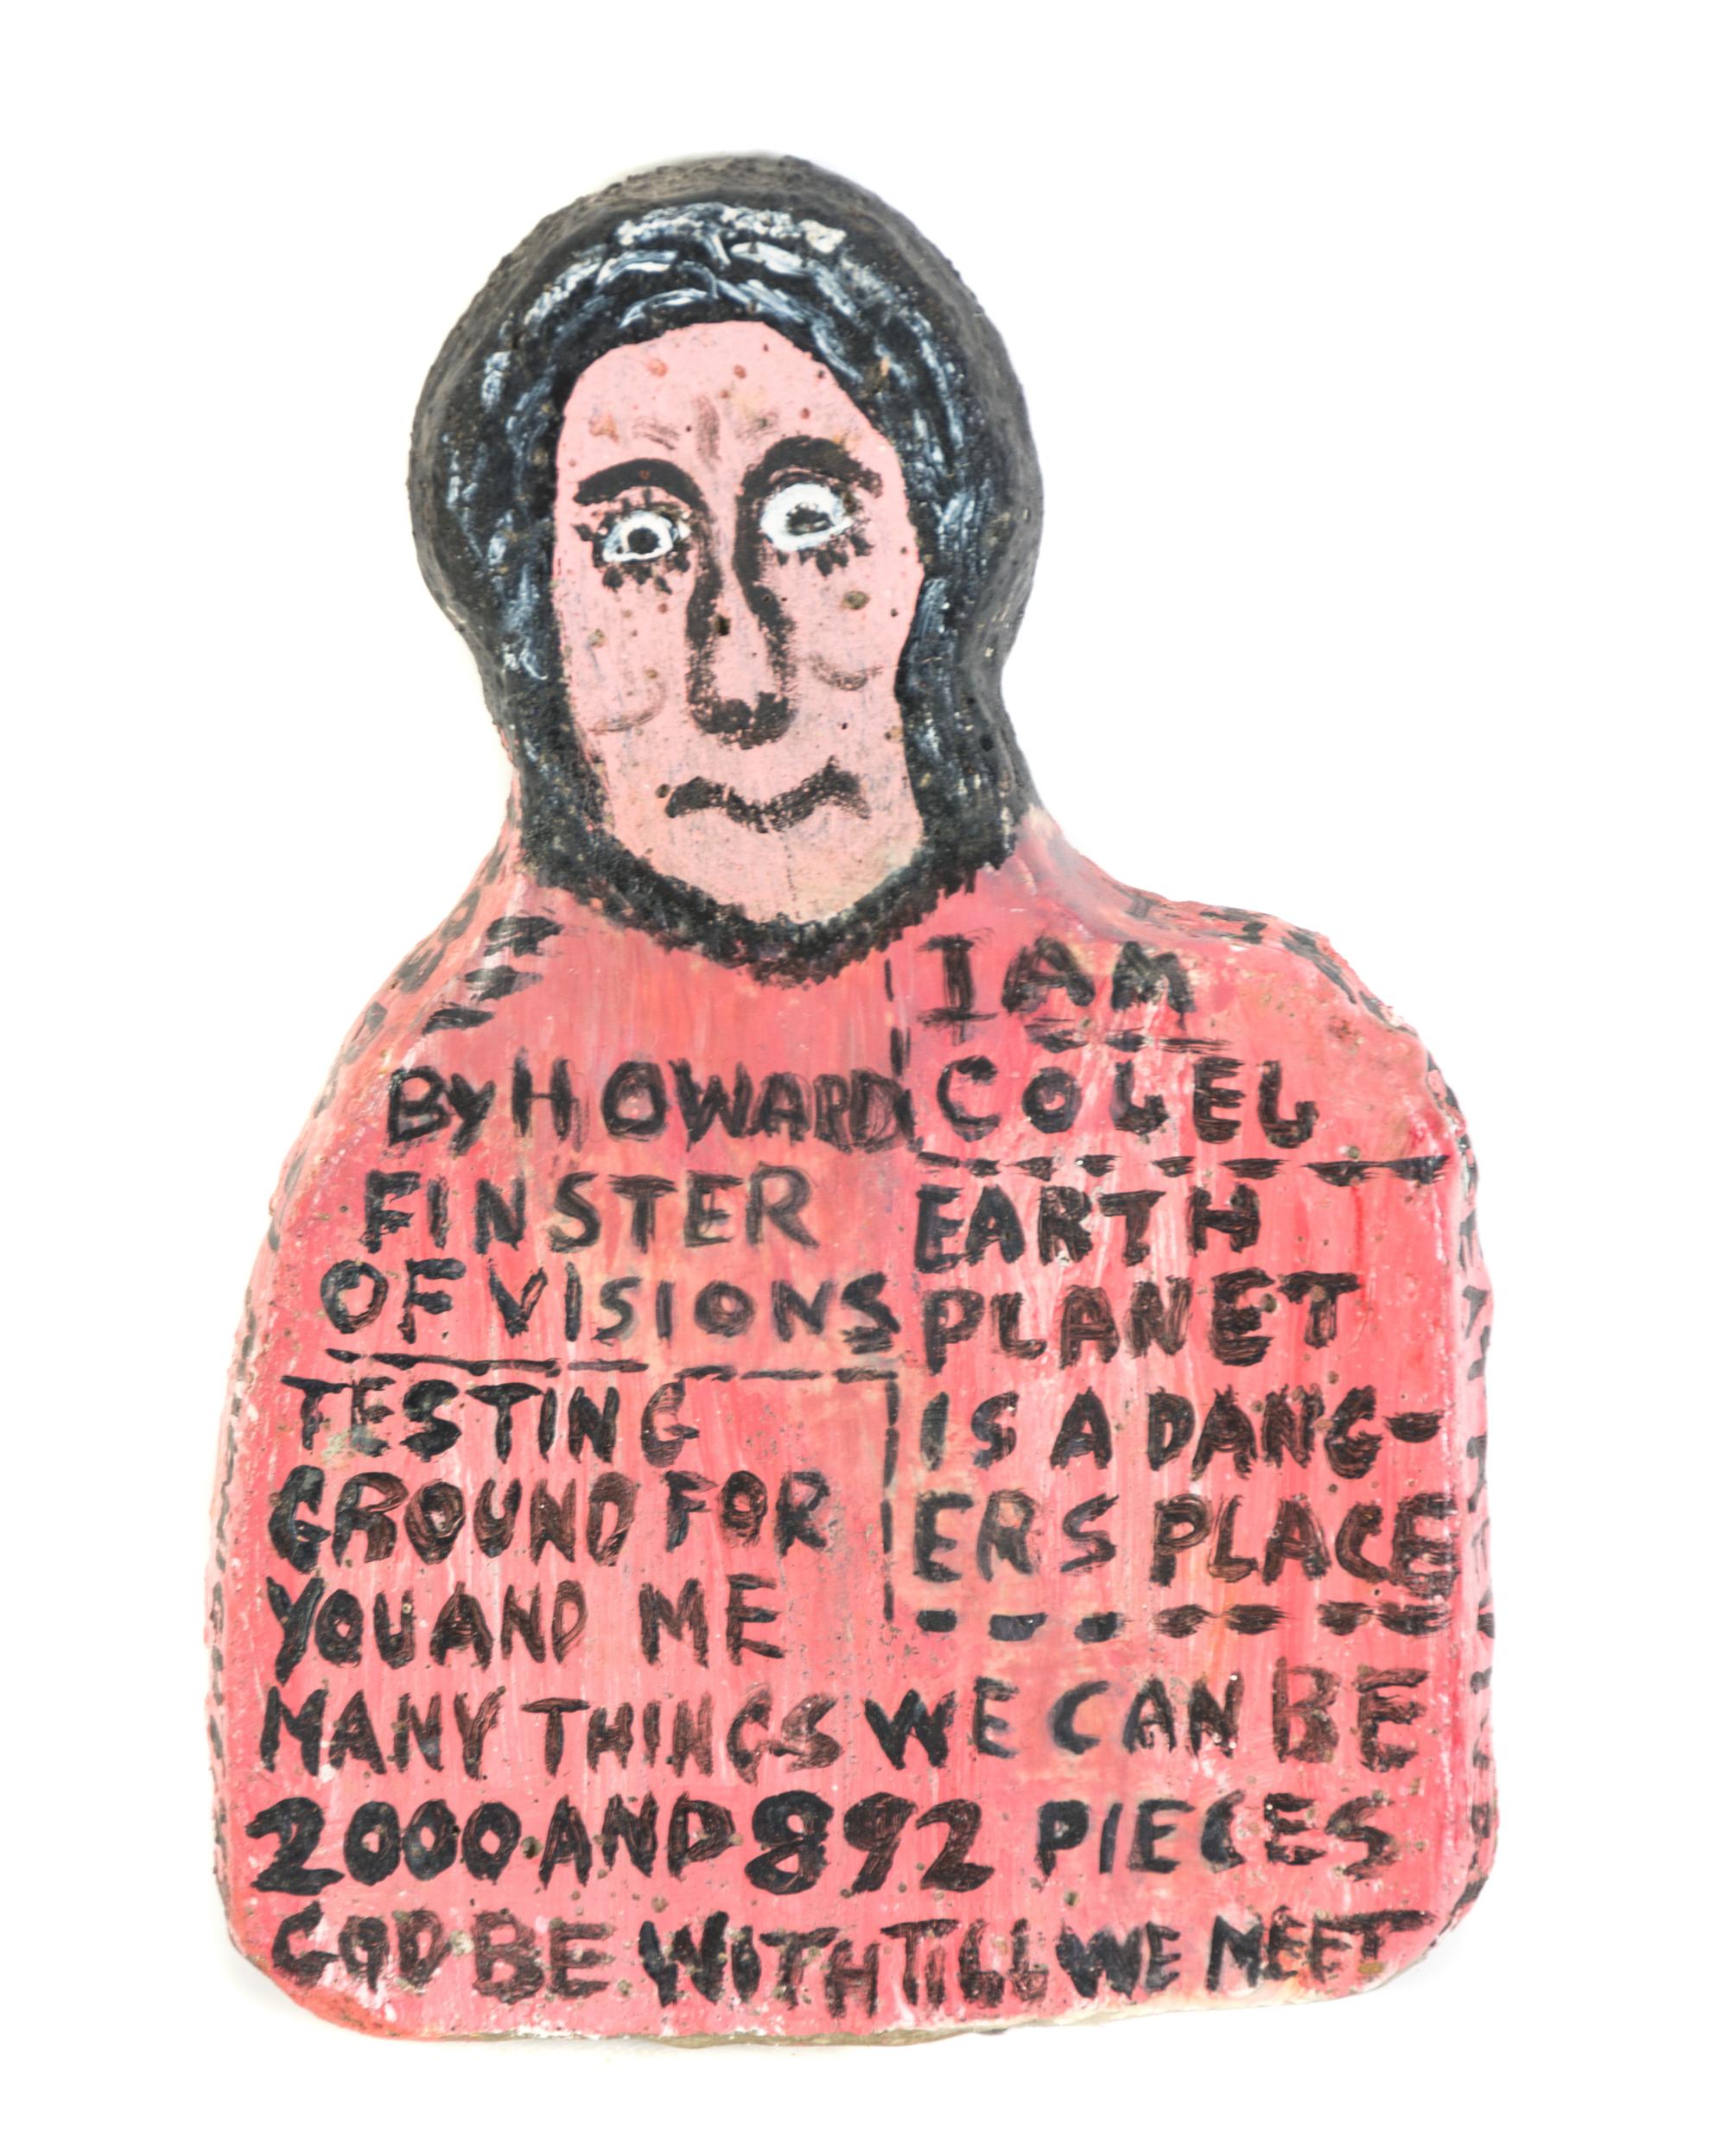 BY HOWARD
FINSTER
OF VISIONS
I AM
COLEL
EARTH
PLANET
IS A DANG-
ERS PLACE
TESTING
GROUND FOR
YOU AND ME
MANY THINGS WE CAN BE
2000 AND 892 PIECES
GOD BE WITH TILL WE MEET